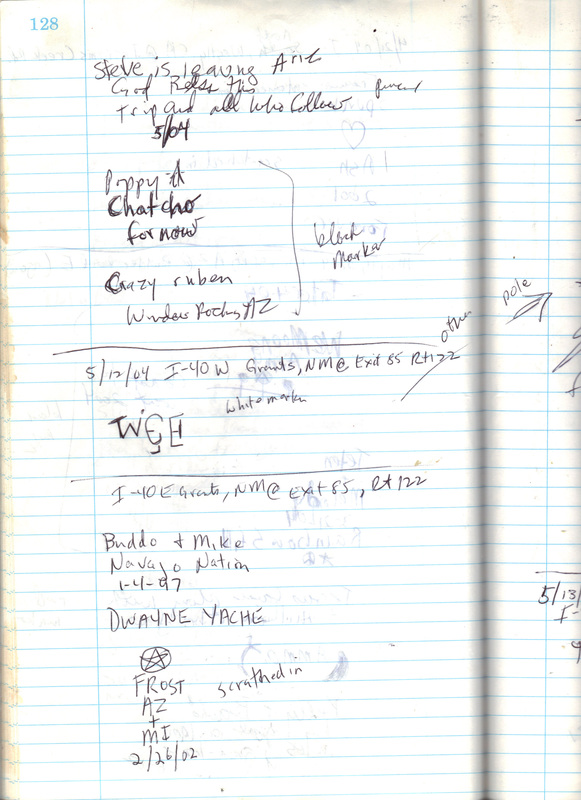 128
Steve is leaving
God Bless this
Trip and all who follow
5/04
Poppy
Chat cho
for now
black
marker
Crazy ruben
Window Rock, AZ
other
pole
5/12/04 I-40 W Grants, NM @ Exit 85 Rt 122
white marker
I-40 E Grants, NM @ Exit 85, Rt 122
Buddo + Mike
Navajo Nation
1-4-97
DWAYNE YACHE
FROST
scratched in
AZ
+
MI
2/26/02
5/13/
I-